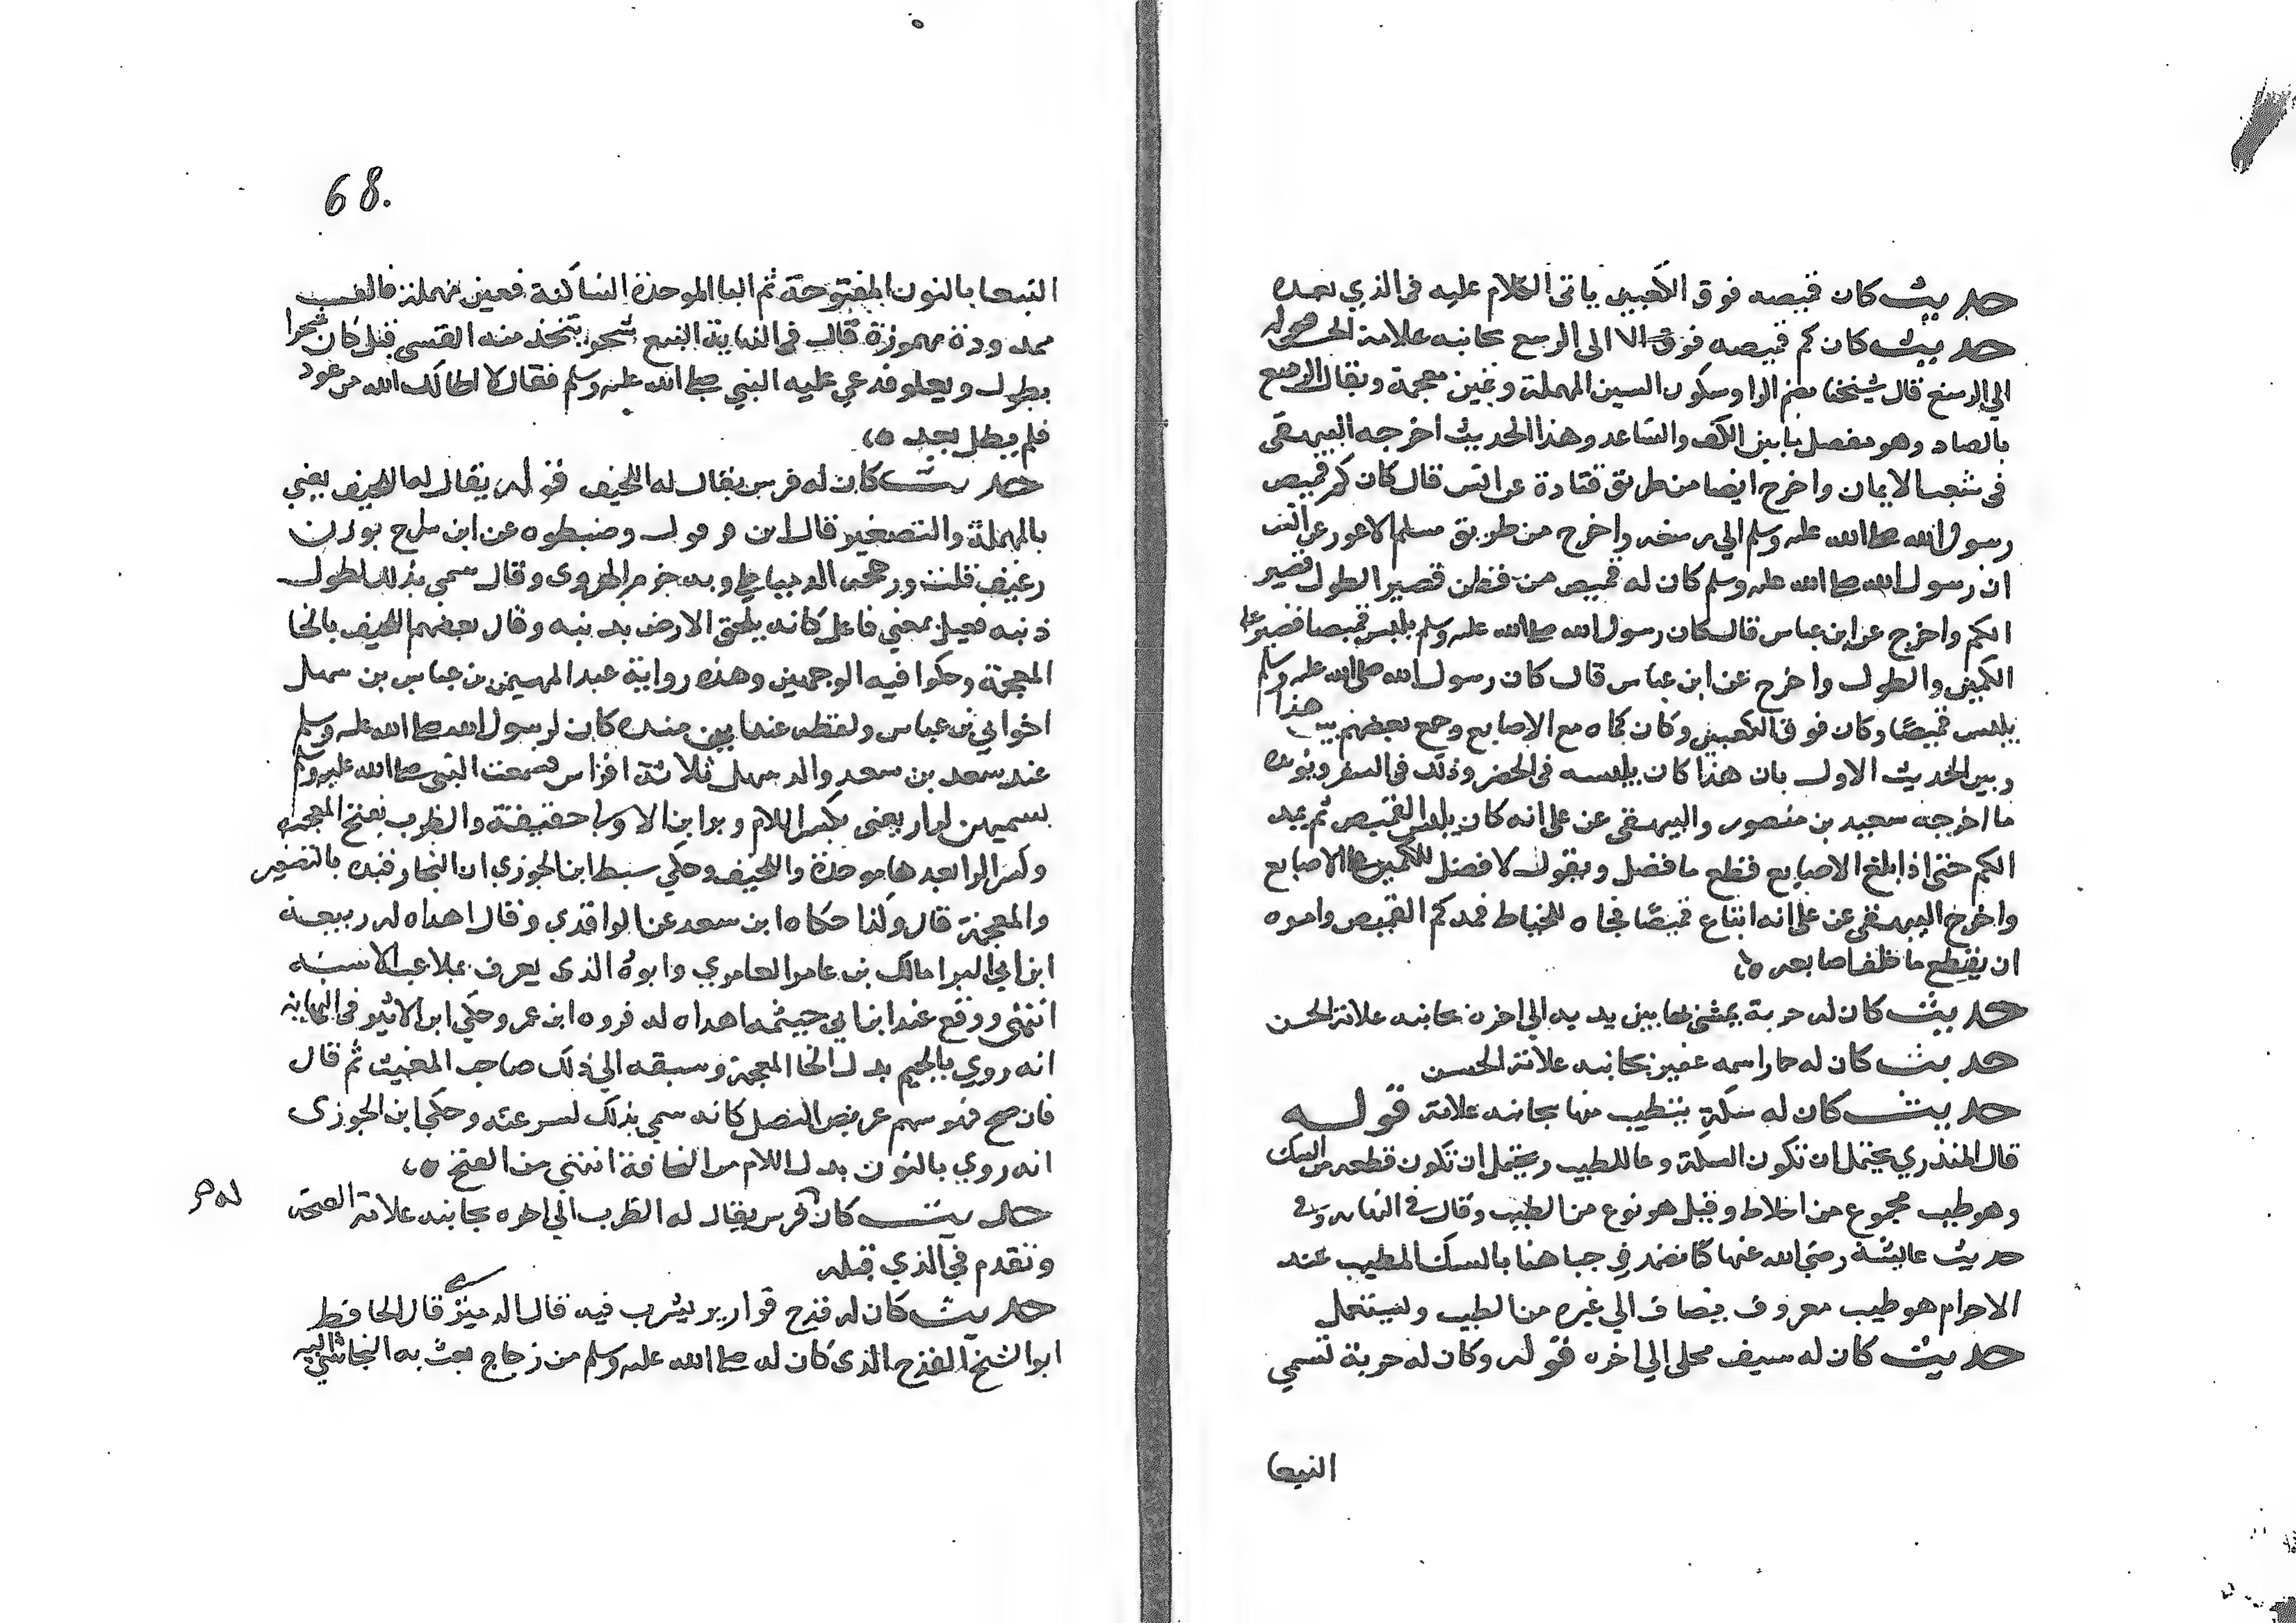 حديث كان قميصه فوق الكعبين ياتى الكلام عليه فى الذي بعده
حديث كان كم قميصه فوق الا الى الرسغ بجانبه علامة الحسن قوله
الي الرسغ قال شيخنا بضم الرا وسكون السين المهملة وغين معجمة ويقال الرصغ
بالصاد وهو مفصل ما بين الكف والساعد وهذا الحديث اخرجه البيهقى
فى شعب الايمان واخرج ايضا من طريق قتادة عن انس قال كان كم قميص
رسول الله صلى الله عليه وسلم الي رسغه واخرج من طريق مسلم الاعور عن انس
ان رسول الله صلى الله عليه وسلم كان له قميص من قطن قصير الطول قصير
الكم واخرج عن ابن عباس قال كان رسول الله صلى الله عليه وسلم يلبس قميصا قصير
الكمين والطول واخرج عن ابن عباس قال كان رسول الله صلى الله عليه وسلم
يلبس قميصًا وكان فوق الكعبين وكان كماه مع الاصابع وجمع بعضهم بين هذا
وبين الحديث الاول بان هذا كان يلبسه فى الحضر وذلك فى السفر ويؤيده
ما اخرجه سعيد بن منصور والبيهقى عن على انه كان يلبس القميص ثم يمد
الكم حتى اذا بلغ الاصابع قطع ما فضل ويقول لا فضل للكمين على الاصابع
واخرج البيهقى عن على انه ابتاع قميصًا فجاه للخياط فمد كم القميص وامره
ان يقطع ما خلف اصابعه
حديث كان له حربة يمشى بها بين يديه الي اخره بجانبه علامة الحسن
حديث كان له حمار اسمه عفير بجانبه علامة الحسن
حديث كان له سكة يتطيب منها بجانبه علامة قوله
قال المنذري يحتمل ان تكون السكة وعا للطيب ويحتمل ان تكون قطعه من السك
وهو طيب مجموع من اخلاط وقيل هو نوع من الطيب وقال فى النهايه وفى
حديث عائشة رضي الله عنها كنا نضمد في جباهنا بالسك المطيب عند
الاحرام هو طيب معروف يضاف الي غيره من الطيب ويستعمل
حديث كان له سيف محلى الي اخره قوله وكان له حربة تسمي
النبعا
68.
النبعا بالنون المفتوحة ثم البا الموحدة الساكنة فعين مهملة فالف
ممدودة مهموزة قال فى النهاية النبع شجر يتخذ منه القسى قيل كان شجرا
يطول ويعلو فدعي عليه النبي صلى الله عليه وسلم فقال لا اطالك الله من عود
فلم يطل بعد
حديث كان له فرس يقال له اللحيف قوله يقال له اللحيف يعني
بالمهملة والتصغير قال ابن قرقول وضبطوه عن ابن سراج بوزن
رغيف قلت ورجحه الدمياطي وبه جزم الهروى وقال سمي بذلك لطول
ذنبه فعيل بمعني فاعل كانه يلحق الارض بذنبه وقال بعضهم اللخيف بالخا
المعجمة وحكوا فيه الوجهين وهذه رواية عبد المهيمن بن عباس بن سهل
اخو ابي بن عباس ولفظه عند ابن منده كان لرسول الله صلى الله عليه وسلم
عند سعد بن سعد والد سهل ثلاثة افراس فسمعت النبى صلى الله عليه وسلم
يسميهن لزاز يعنى بكسر اللام وبزاين الاولى خفيفة والظرب بفتح المعجمه
وكسر الرا بعدها موحدة واللخيف وحكي سبط ابن الجوزي ان البخار قيده بالتصغير
والمعجمة قال وكذا حكاه ابن سعد عن الواقدي وقال اهداه له ربيعة
ابن ابي البرا مالك بن عامر العامري وابوه الذى يعرف بملاعب الاسنه
انتهى ووقع عند ابن ابي خيثمه اهداه له فروه ابن عمر وحكي ابن الاثير فى النهايه
انه روي بالجيم بدل الخا المعجمة وسبقه الي ذلك صاحب المغيث ثم قال
فان صح فهو سهم عريض النصل كانه سمي بذلك لسرعته وحكي ابن الجوزى
انه روي بالنون بدل اللام من النحافة انتهى من الفتح
حديث كان فرس يقال له الظرب الي اخره بجانبه علامة الصحة
له صح
وتقدم في الذي قبله
حديث كان له قدح قوارير يشرب فيه قال الدميري قال الحافظ
ابو الشيخ القدح الذى كان له صلى الله عليه وسلم من زجاج بعث به النجاشي اليه